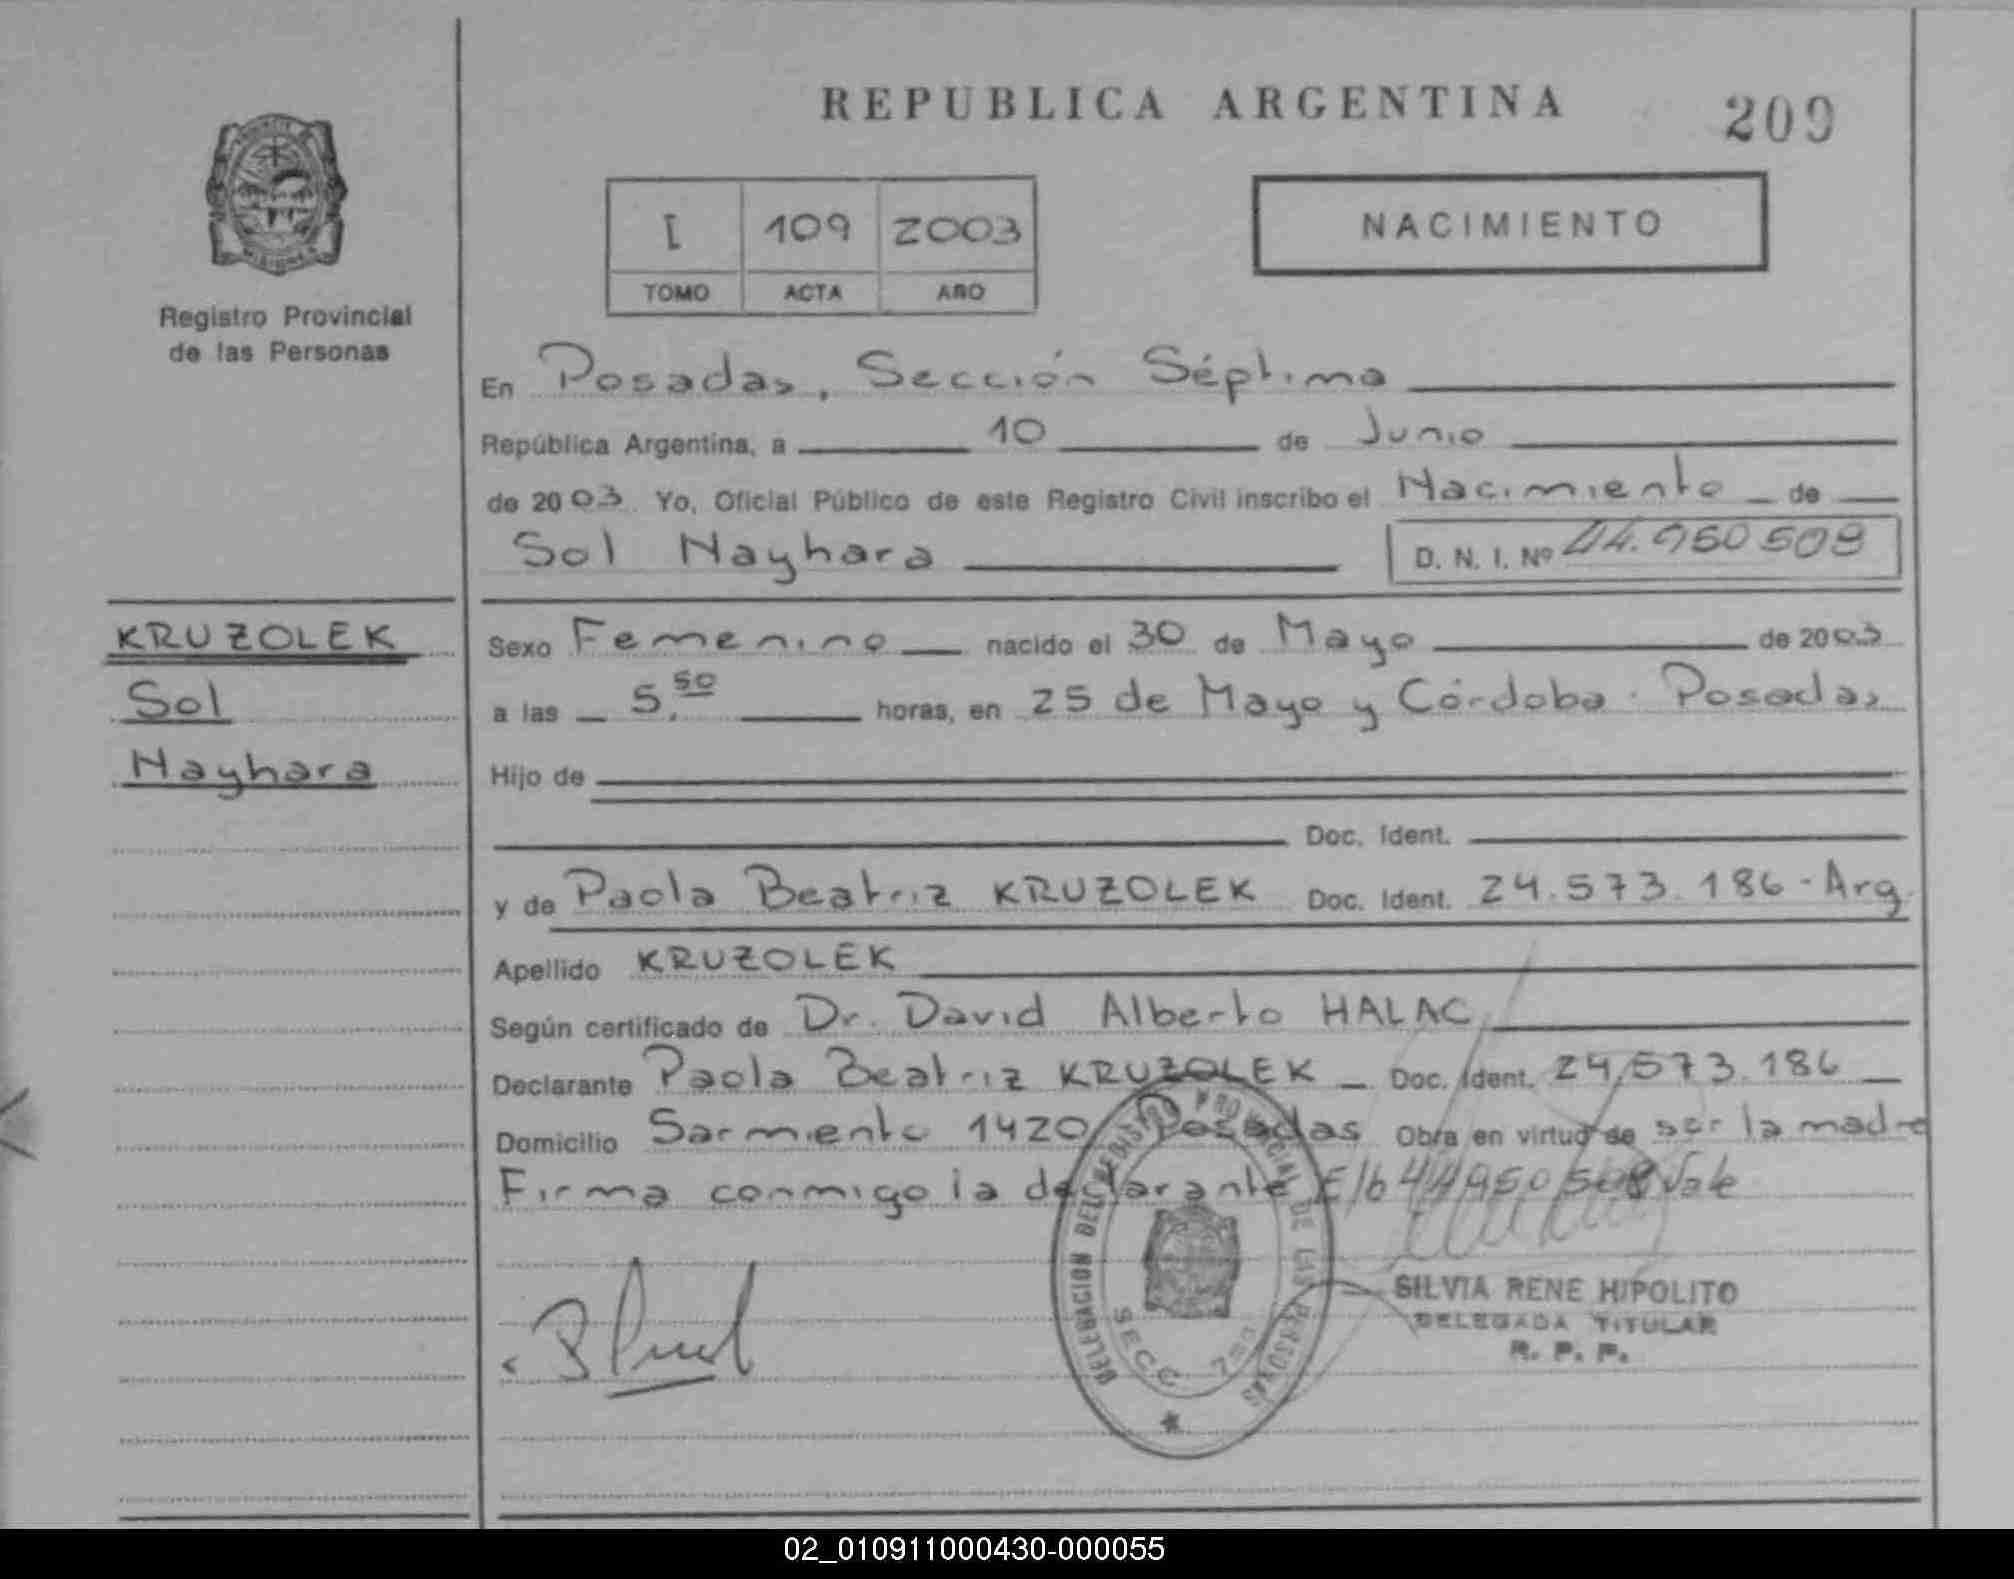 REPUBLICA ARGENTINA
209
I 109 2003
TOMO ACTA AÑO
NACIMIENTO
Registro Provincial
de las Personas
En Posadas, Sección Séptima
República Argentina, a 10 de Junio
de 2003 Yo, Oficial Público de este Registro Civil inscribo el Nacimiento de
Sol Nayhara D. N. I. Nº 44.950 508
KRUZOLEK
Sol
Nayhara
Sexo Femenino nacido el 30 de Mayo de 2003
a las 5,50 horas, en 25 de Mayo y Córdoba. Posadas
Hijo de
Doc. Ident.
y de Paola Beatriz KRUZOLEK Doc. Ident. 24.573.186 - Arg.
Apellido KRUZOLEK
Según certificado de Dr. David Alberto HALAC
Declarante Paola Beatriz KRUZOLEK Doc. Ident. 24.573.186
Domicilio Sarmiento 1420 Posadas Obra en virtud de ser la madre
Firma conmigo la declarante E/b 44950 508 Vale
DELEGACION DEL REGISTRO PROVINCIAL DE LAS PERSONAS
SECC. 7ma
SILVIA RENE HIPOLITO
DELEGADA TITULAR
R. P. P.
02_010911000430-000055